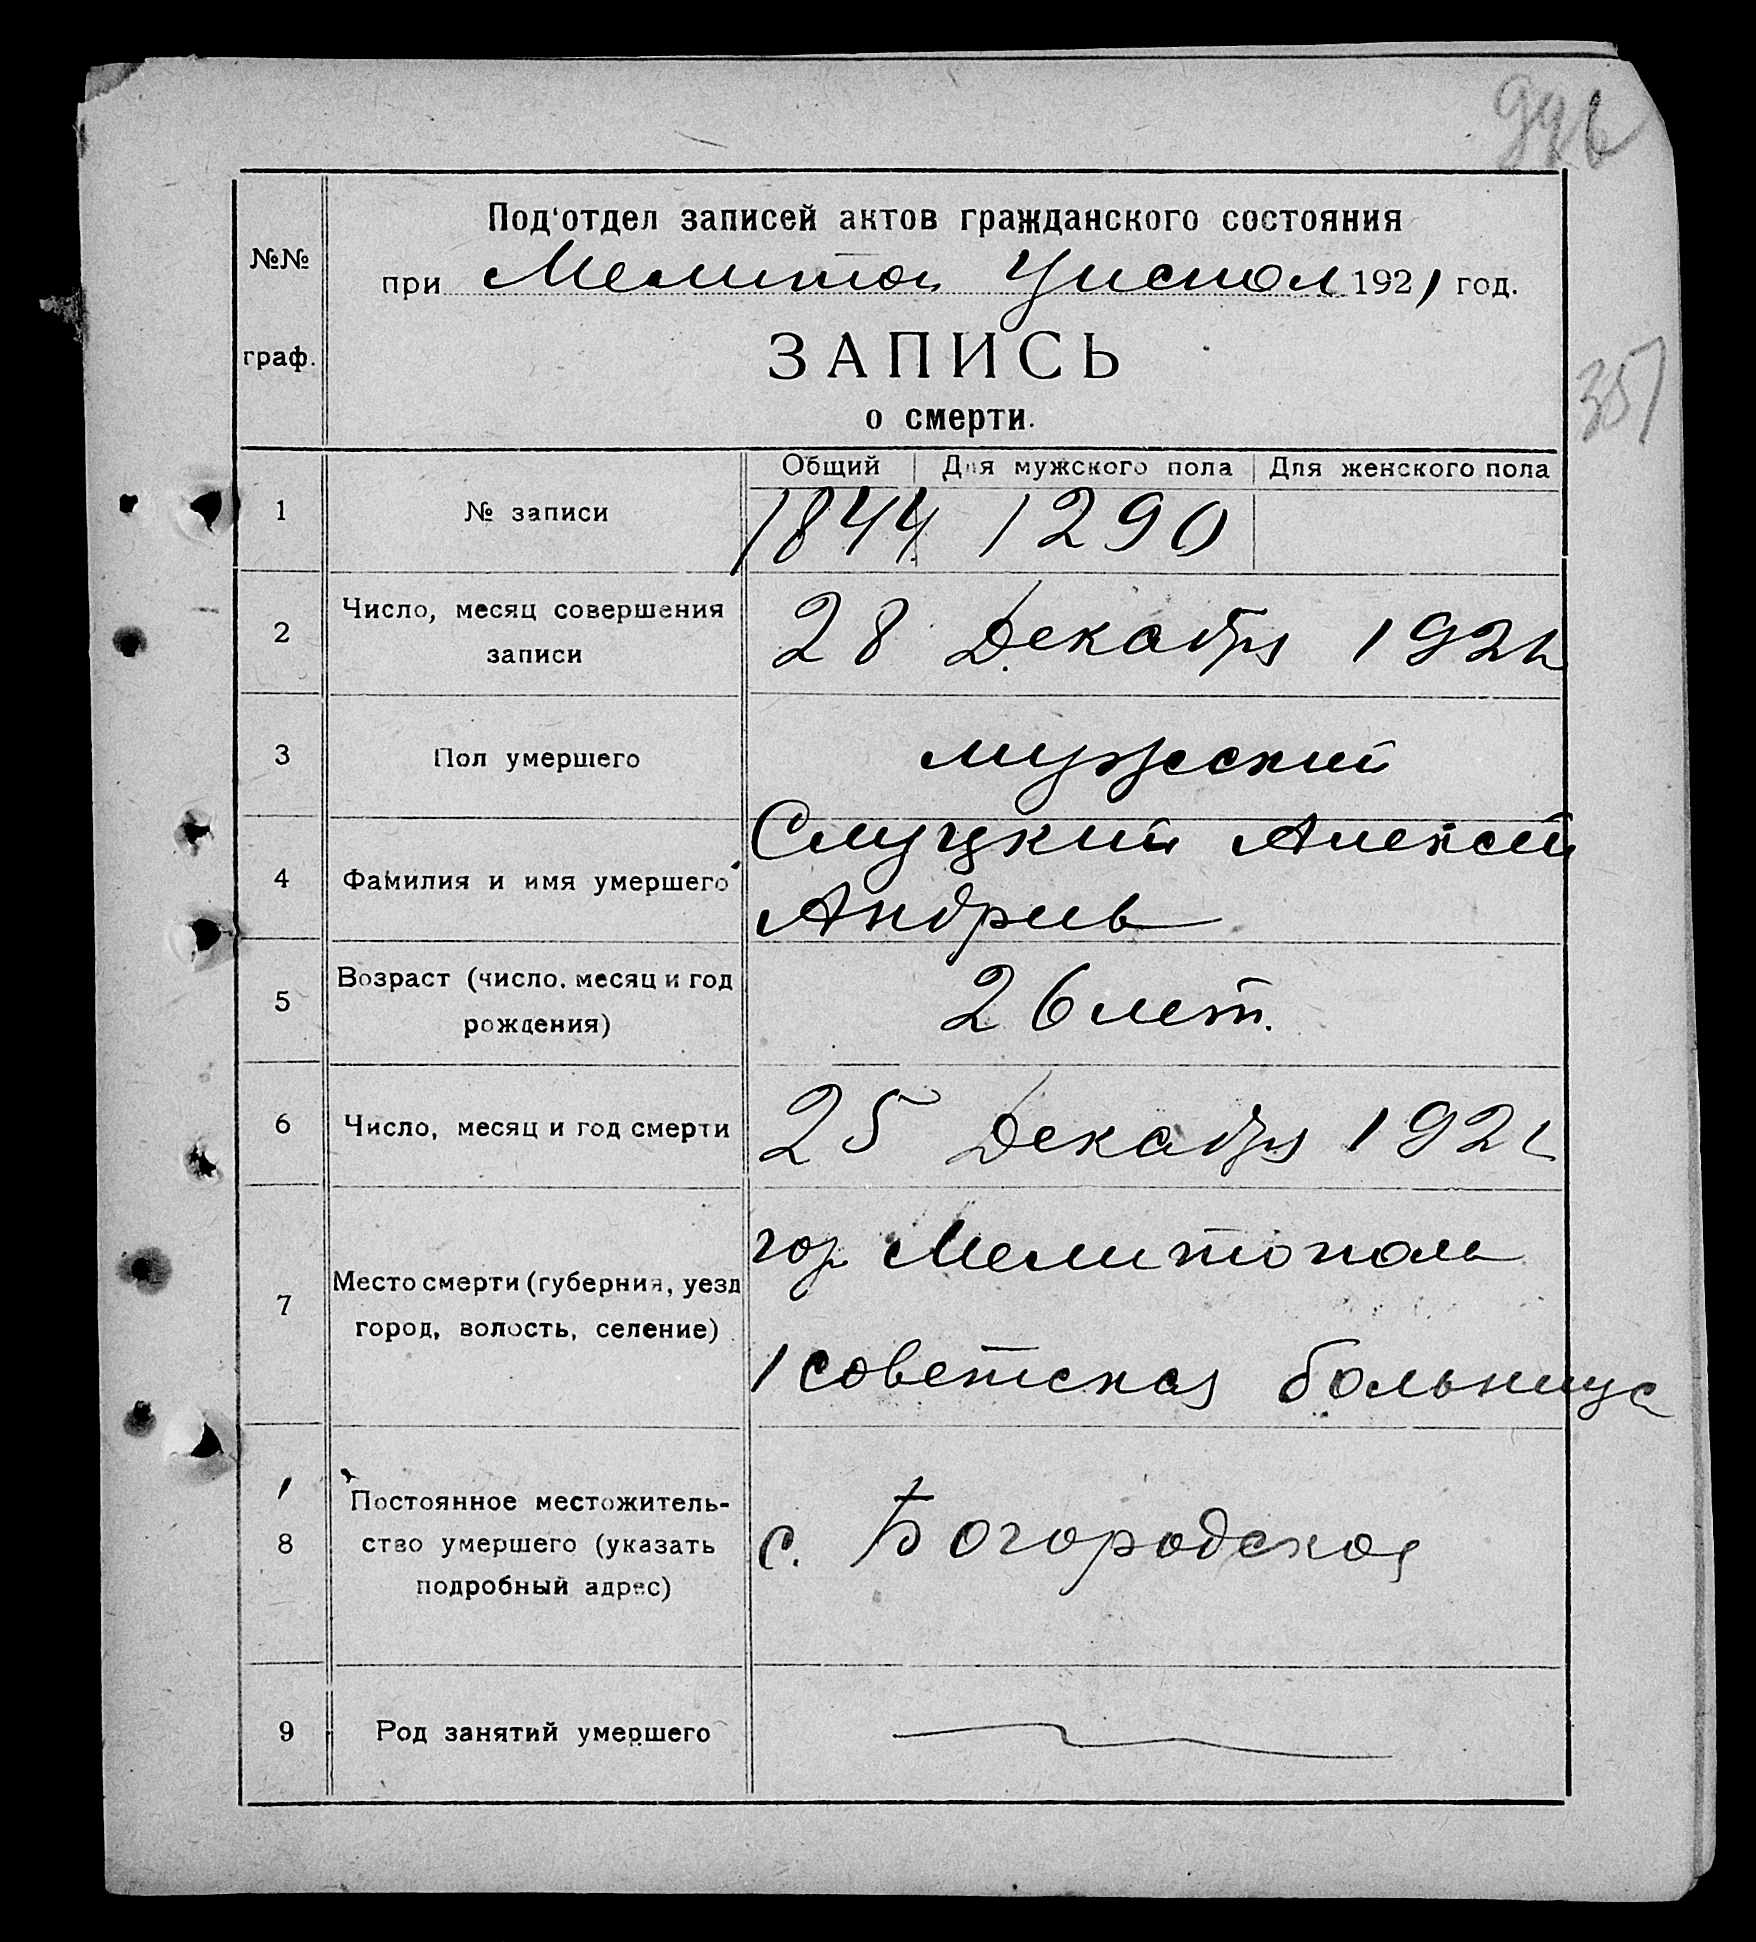 996
Под'отдел записей актов гражданского состояния
№№
при Мелитоп Уиспол 1921 год.
ЗАПИСЬ
граф.
351
о смерти.
Общий Для мужского пола Для женского пола
1 № записи 1844 1290
2 Число, месяц совершения записи 28 Декабря 1921
3 Пол умершего мужеский
4 Фамилия и имя умершего Слуцкий Алексей
Андреев
5 Возраст (число, месяц и год рождения) 26 лет.
6 Число, месяц и год смерти 25 Декабря 1921
7 Место смерти (губерния, уезд город, волость, селение) гор Мелитополь
1 советская больница
8 Постоянное местожитель-
ство умершего (указать с. Богородское
подробный адрес)
9 Род занятий умершего